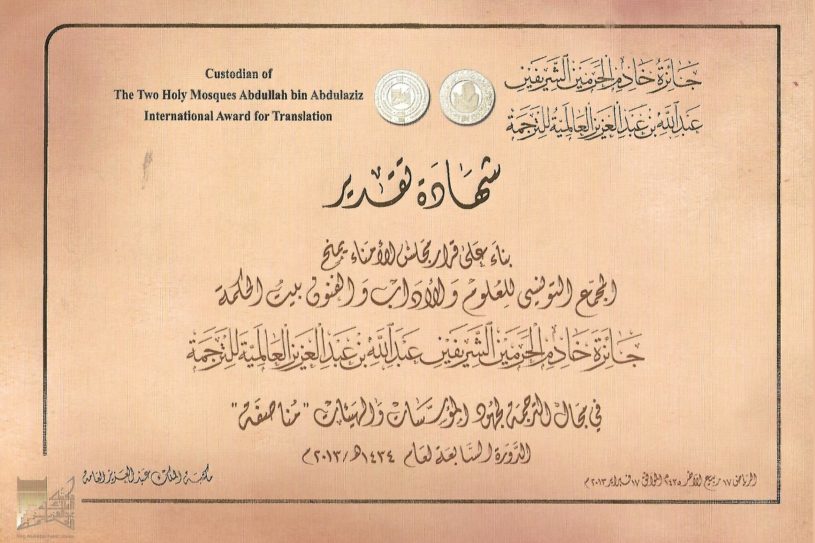 Custodian of
The Two Holy Mosques Abdullah bin Abdulaziz
International Award for Translation
جائزة خادم الحرمين الشريفين
عبدالله بن عبدالعزيز العالمية للترجمة
شهادة تقدير
بناء على قرار مجلس الأمناء يمنح
المجمع التونسي للعلوم والآداب والفنون بيت الحكمة
جائزة خادم الحرمين الشريفين عبدالله بن عبدالعزيز العالمية للترجمة
في مجال الترجمة لجهود المؤسسات والهيئات "مناصفة"
الدورة السابعة لعام ١٤٣٤هـ/٢٠١٣م
الرياض ١٧ ربيع الآخر الموافق ١٧ فبراير ٢٠١٣م
مكتبة الملك عبدالعزيز العامة